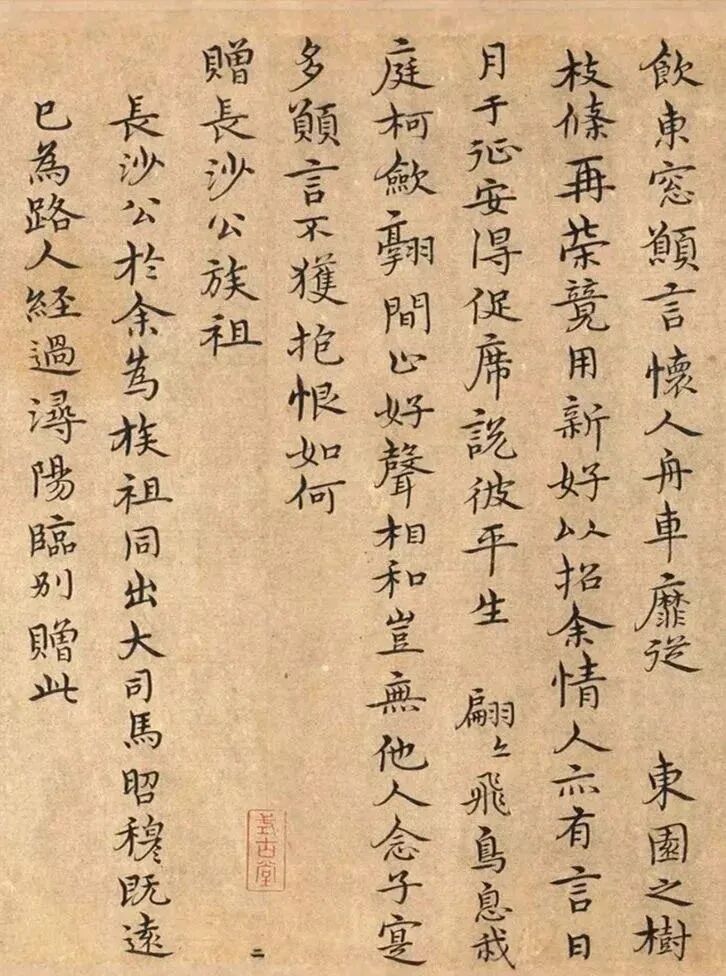 飲東窓願言懷人舟車靡從　東園之樹
枝條再榮竟用新好以招余情人亦有言日
月于征安得促席說彼平生　翩〻飛鳥息我
庭柯歛翮間止好聲相和豈無他人念子寔
多願言不獲抱恨如何
贈長沙公族祖
長沙公於余為族祖同出大司馬昭穆既遠
已為路人經過潯陽臨別贈此
式古堂
二